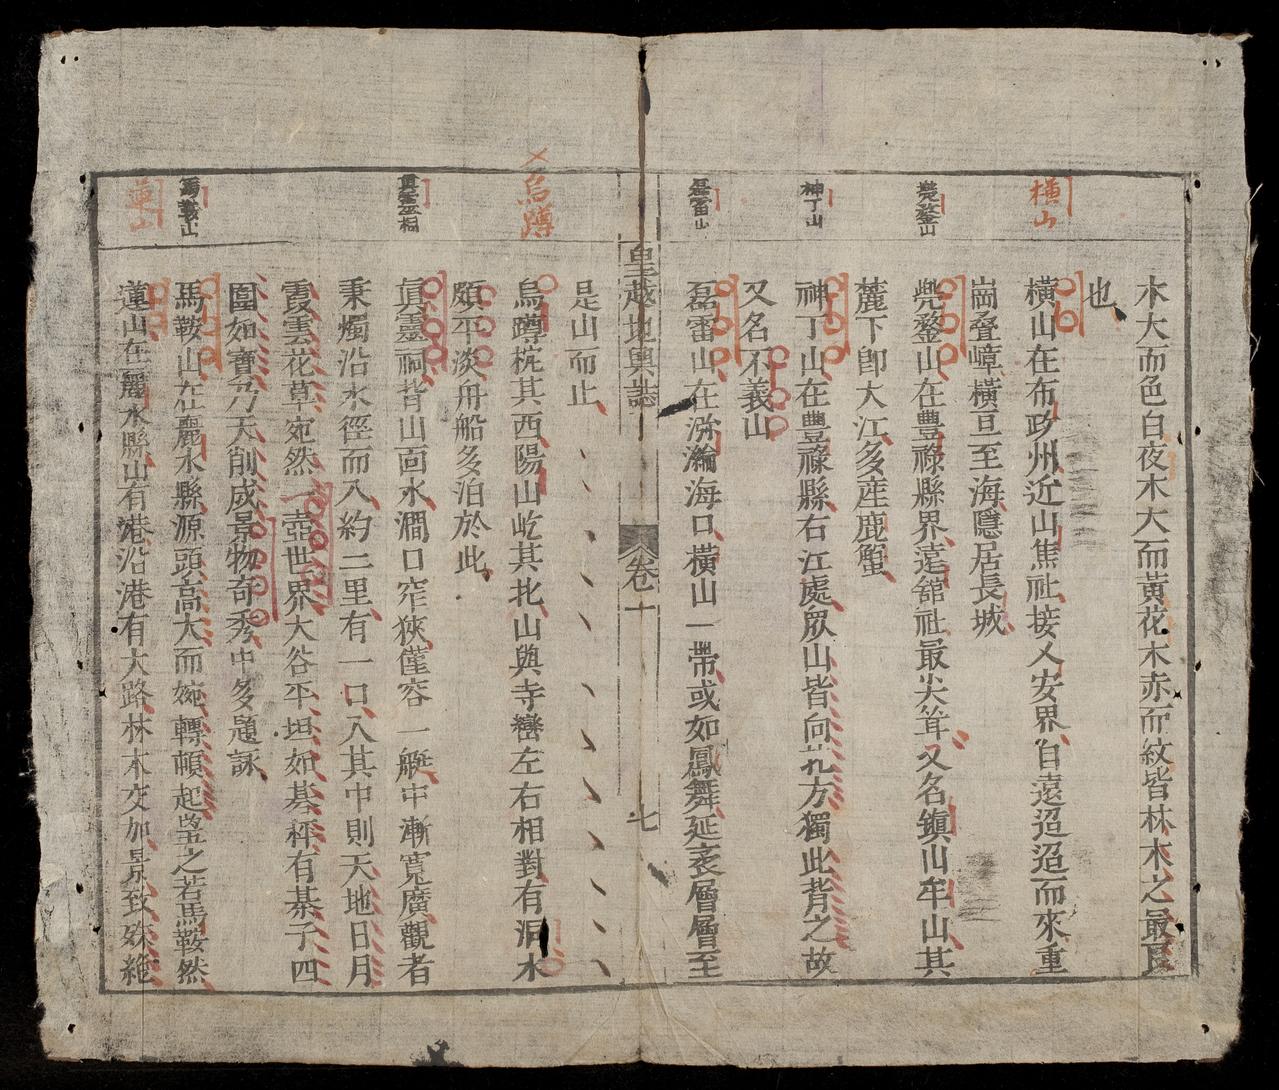 木大而色白夜木大而黃花木赤而紋皆林木之最良
也
橫山
橫山在布政州近山焦社接乂安界自遠迢迢而來重
崗叠嶂橫亘至海隱居長城
兠鍪山
兠鍪山在豊祿縣界遠舘社最尖耸又名鎮山牟山其
麓下卽大江多産鹿蟹
神丁山
神丁山在豊祿縣右江處眾山皆向北方獨此背之故
又名不義山
磊雷山
磊雷山在㳽瀹海口橫山一帶或如鳳舞延袤層層至
皇越地輿誌
卷一
七
是山而止
烏蹲
烏蹲梡其西陽山屹其北山與寺巒左右相對有洞水
頗平淡舟船多泊於此
眞靈祠
眞靈祠背山靣水澗口窄狹僅容一艇中漸寬廣觀者
秉燭沿水徑而入約二里有一口入其中則天地日月
霞雲花草宛然一壺世界大谷平坦如棊枰有棊子四
圍如寶分天削成景物奇秀中多題詠
馬鞍山
馬鞍山在麗水縣源頭高大而婉轉頓起望之若馬鞍然
蓮山
蓮山在麗水縣山有港沿港有大路林木交加景致殊絶